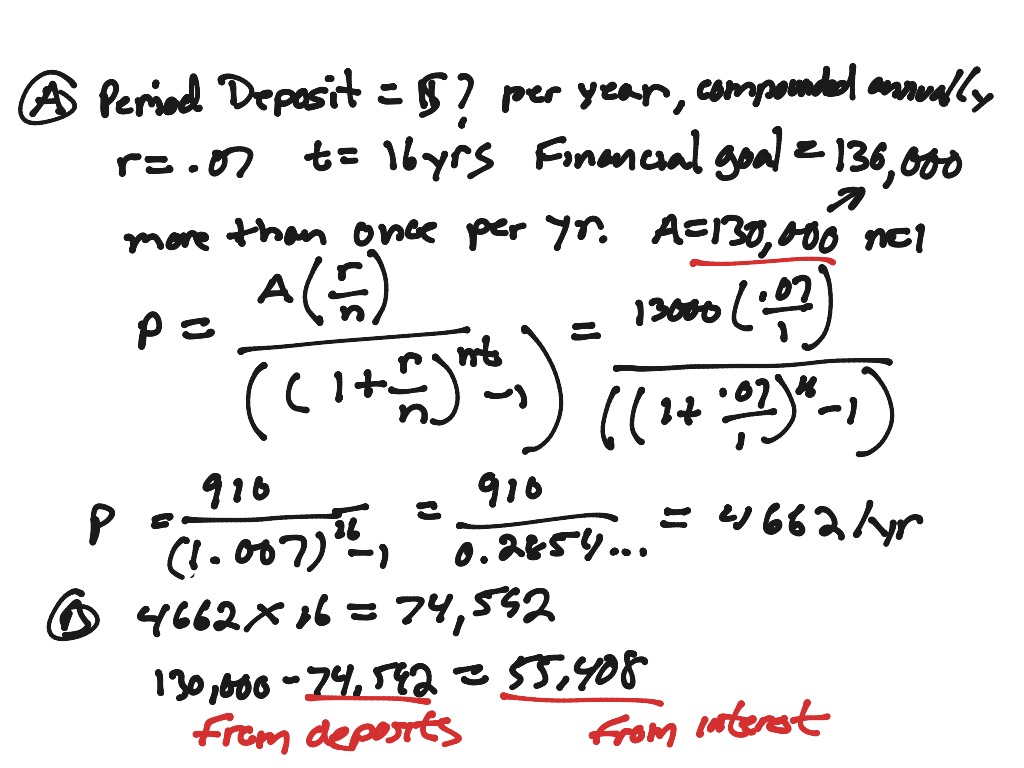 Ⓐ Period Deposit = $? per year, compounded annually
r = .07 t = 16 yrs Financial goal = 130,000
more than once per yr. A = 130,000 n=1
P = A(r/n) / ((1 + r/n)^nt - 1) = 13000(.07/1) / ((1 + .07/1)^16 - 1)
P = 910 / (1.007)^16 - 1 = 910 / 0.2854... = 4662/yr
4662 × 16 = 74,592
130,000 - 74,592 = 55,408
From deposits From interest